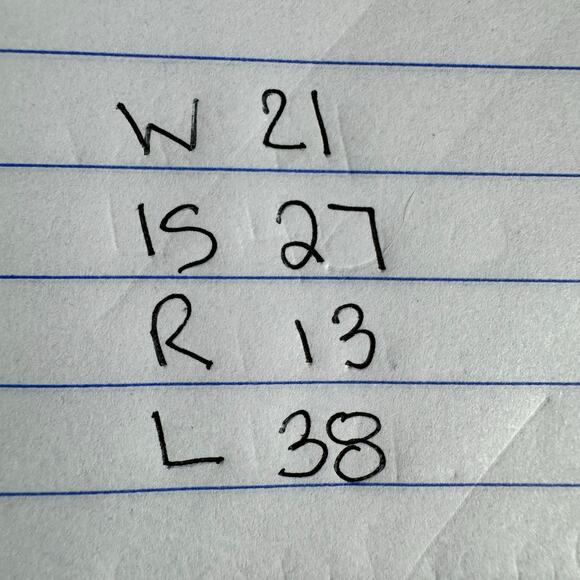 W 21
IS 27
R 13
L 38